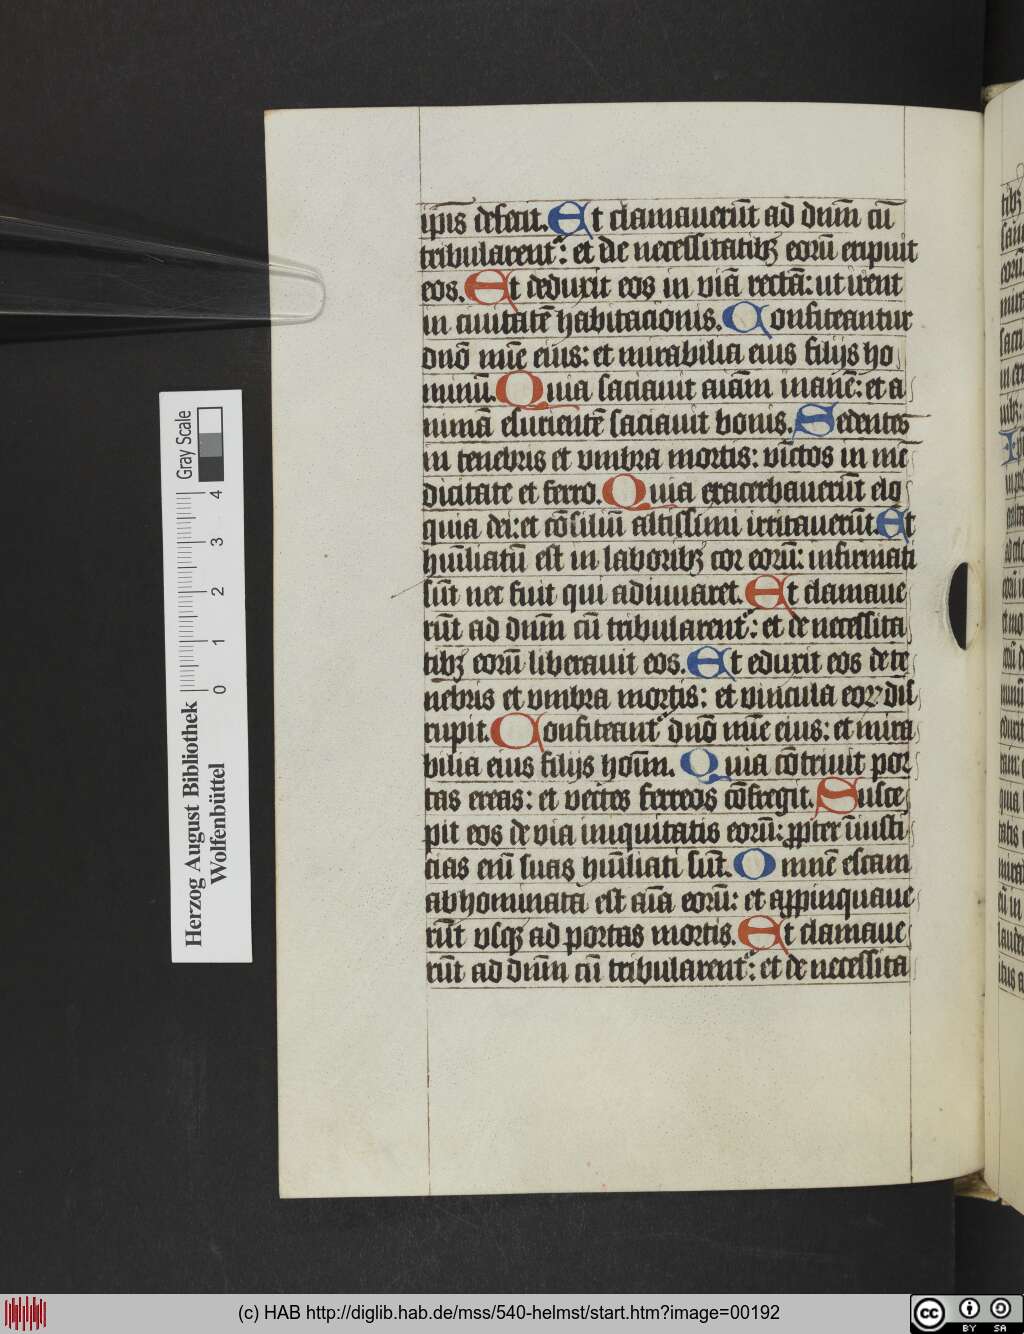 ip̄is defecit. Et clamauerūt ad dn̄m cū
tribularent᷑: et de necessitatibꝫ eorū eripuit
eos. Et deduxit eos in viā rectā: ut irent
in ciuitatē habitacionis. Confiteantur
dn̄o mīe eius: et mirabilia eius filijs ho
minū. Quia saciauit aīam inanē: et a
nimā esurientē saciauit bonis. Sedentes
in tenebris et vmbra mortis: vīctos in mē
dicitate et ferro. Quia exacerbauerūt elo
quia dei: et cōsiliū altissimi irritauerūt. Et
hūīliatū est in laboribꝫ cor eorū: infirmati
sūt nec fuit qui adiuuaret. Et clamaue
rūt ad dn̄m cū tribularent᷑: et de necessita
tibꝫ eorū liberauit eos. Et eduxit eos de te
nebris et vmbra mortis: et vincula eoꝝ dis
rupit. Confiteant᷑ dn̄o mīe eius: et mira
bilia eius filijs hoīm. Quia cōtriuit por
tas ereas: et vectes ferreos cōfregit. Susce
pit eos de via iniquitatis eorū: ꝓpter īiusti
cias enī suas hūīliati sūt. Omnē escam
abhominata est aīa eorū: et aꝓpinquaue
rūt vsqꝫ ad portas mortis. Et clamaue
rūt ad dn̄m cū tribularent᷑: et de necessita
Gray Scale
0 1 2 3 4
Herzog August Bibliothek
Wolfenbüttel
(c) HAB http://diglib.hab.de/mss/540-helmst/start.htm?image=00192
cc BY SA